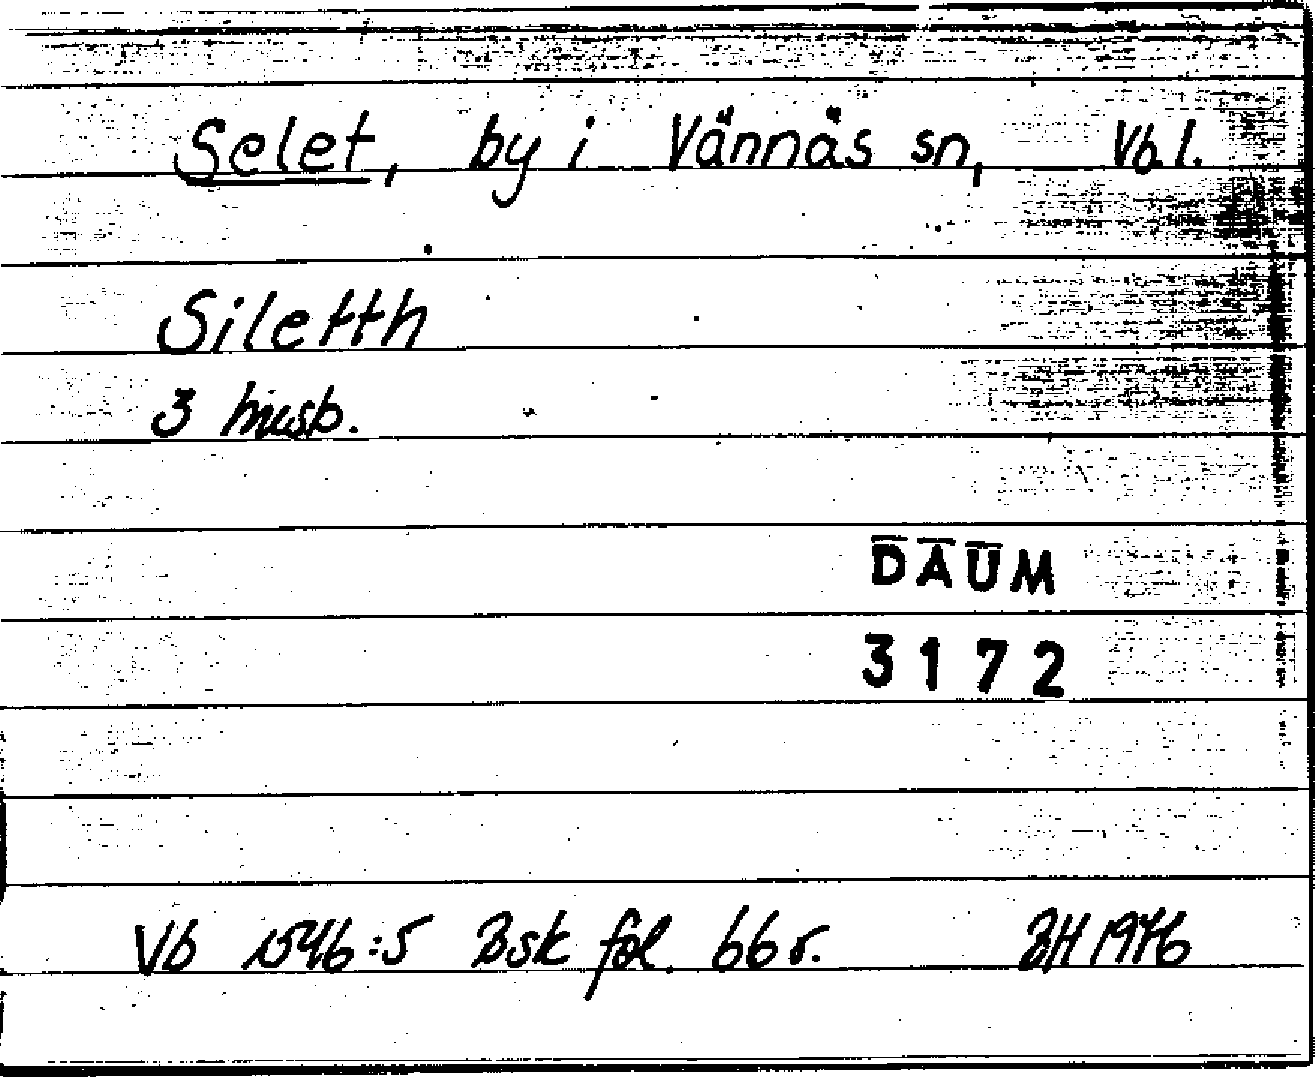 Selet, by i Vännäs sn, Vb l.
Siletth
3 husb.
DAUM
3172
Vb 1546:5 Bsk fol. 66 r. BH 1976